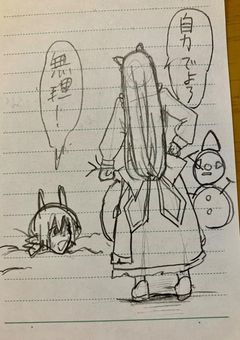 自力でよろ
無理!